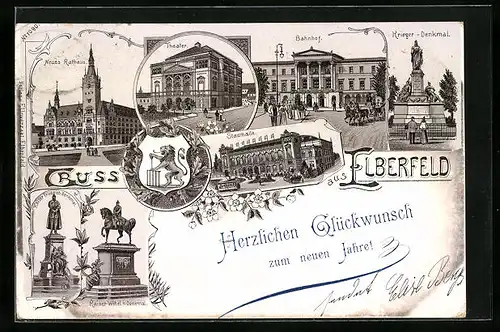 Neues Rathaus.
Theater.
Bahnhof.
Krieger-Denkmal.
Stadthalle.
GRUSS
aus
ELBERFELD
Kaiser Wilhelm-Denkmal
Herzlichen Glückwunsch
zum neuen Jahre!
sendet